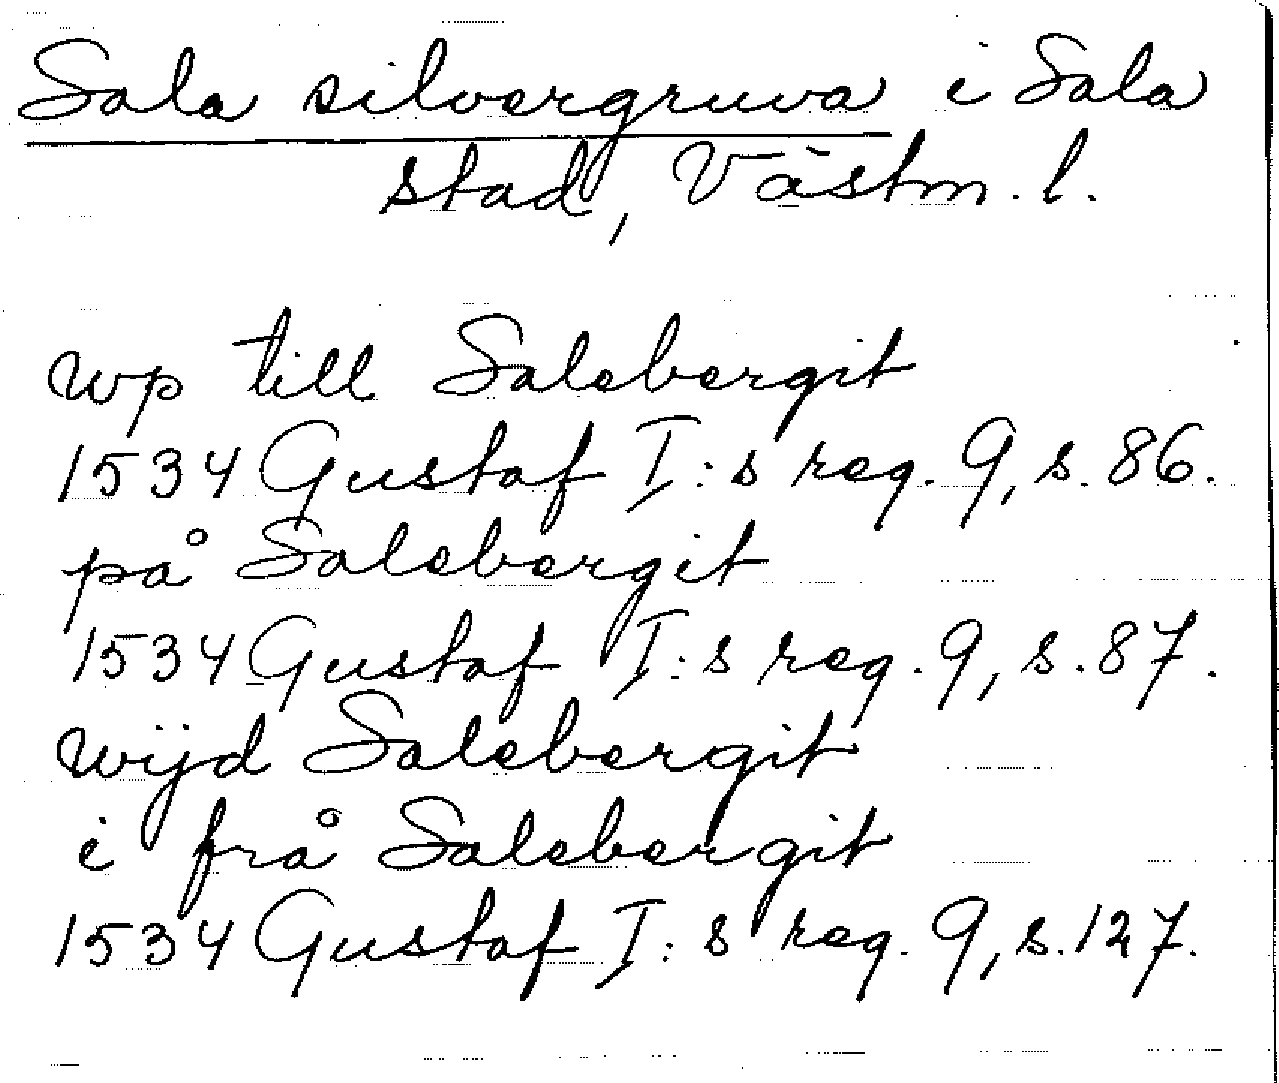 Sala silvergruva i Sala
stad, Västm. l.
wp till Salebergit
1534 Gustaf I:s reg. 9, s. 86.
på Salebergit
1534 Gustaf I:s reg. 9, s. 87.
wijd Salebergit
i frå Salebergit
1534 Gustaf I:s reg. 9, s. 127.